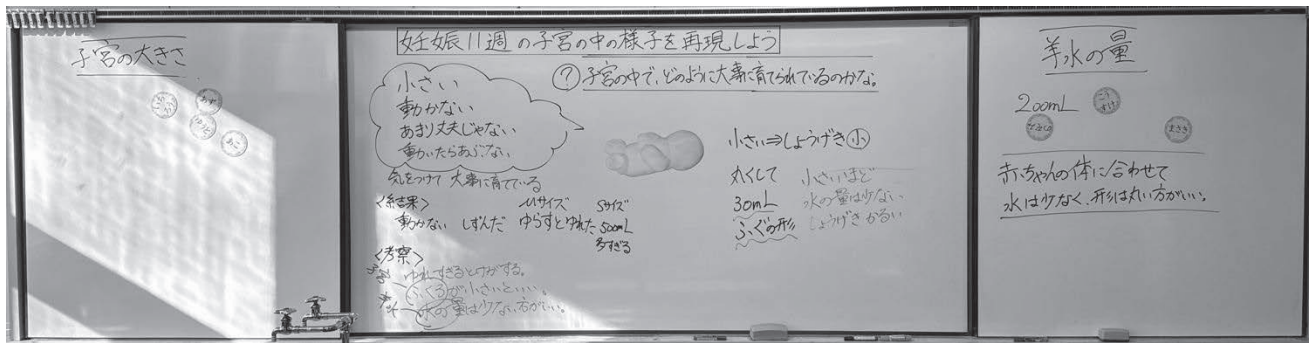 子宮の大きさ
あず
ゆうと
あこ
妊娠11週の子宮の中の様子を再現しよう
? 子宮の中で、どのように大事に育てられているのかな。
小さい
動かない
あまり丈夫じゃない
動いたらあぶない
気をつけて 大事に育てている
<結果> Mサイズ Sサイズ
動かない しずんだ ゆらすとゆれた 500mL
多すぎる
<考察>
子宮 ゆれすぎるとけがする。
ふくろが小さいといい。
羊水 水の量は少ない方がいい。
小さい⇒しょうげき小
丸くして
30mL
ふぐの形
小さいほど
水の量は少ない
しょうげきかるい
羊水の量
200mL
こうすけ
まさき
赤ちゃんの体に合わせて
水は少なく、形は丸い方がいい。